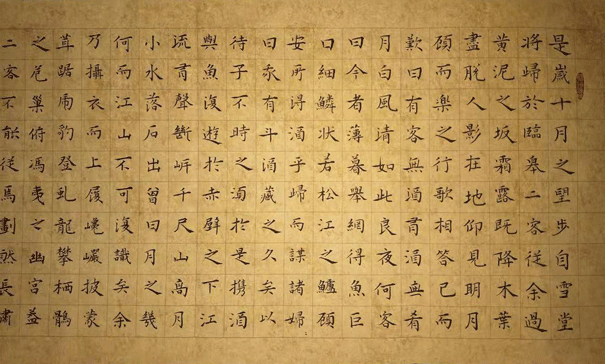 是歲十月之望步自雪堂
將歸於臨皋二客從余過
黃泥之坂霜露既降木葉
盡脫人影在地仰見明月
顧而樂之行歌相答已而
歎曰有客無酒有酒無肴
月白風清如此良夜何客
曰今者薄暮舉網得魚巨
口細鱗狀若松江之鱸顧
安所得酒乎歸而謀諸婦
曰我有斗酒藏之久矣以
待子不時之湏於是携酒
與魚復遊於赤壁之下江
流有聲斷岸千尺山高月
小水落石出曾日月之幾
何而江山不可復識矣余
乃攝衣而上履巉巖披蒙
茸踞虎豹登虬龍攀栖鶻
之危巢俯馮夷之幽宮蓋
二客不能從焉劃然長嘯